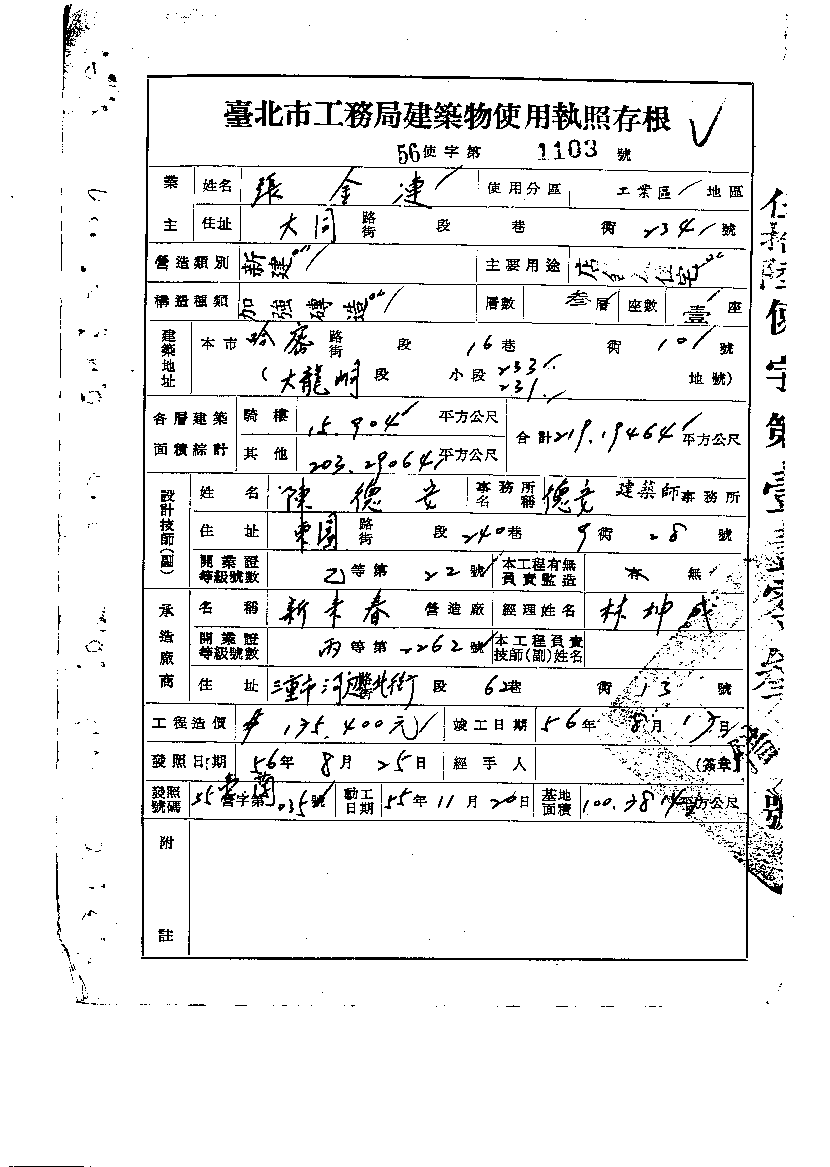 臺北市工務局建築物使用執照存根
56使字第 1103 號
業主 姓名 張金連 使用分區 工業區 地區
住址 大同 路街 段 巷 衖 234 號
營造類別 新建 主要用途 店 住宅
構造種類 加強磚造 層數 叁層 座數 壹座
建築地址 本市 哈密 路街 段 16巷 衖 10 號
(大龍峒段 小段 233 231 地號)
各層建築面積綜計 騎樓 15.904 平方公尺 合計 219.19464 平方公尺
其他 203.29064 平方公尺
設計技師(副) 姓名 陳德 事務所名稱 德 建築師事務所
住址 東園 路街 段 240巷 9衖 28號
開業證等級號數 乙等第 22號 本工程有無負責監造 有 無
承造廠商 名稱 新東春 營造廠 經理姓名 林坤成
開業證等級號數 丙等第 2262號 本工程負責技師(副)姓名
住址 三重市河邊北街 段 62巷 衖 13 號
工程造價 135.400元 竣工日期 56年 8月 13日
發照日期 56年 8月 25日 經手人 (簽章)
發照號碼 55營字第 035號 動工日期 55年 11月 20日 基地面積 100.3814 平方公尺
附註
使字第壹 號